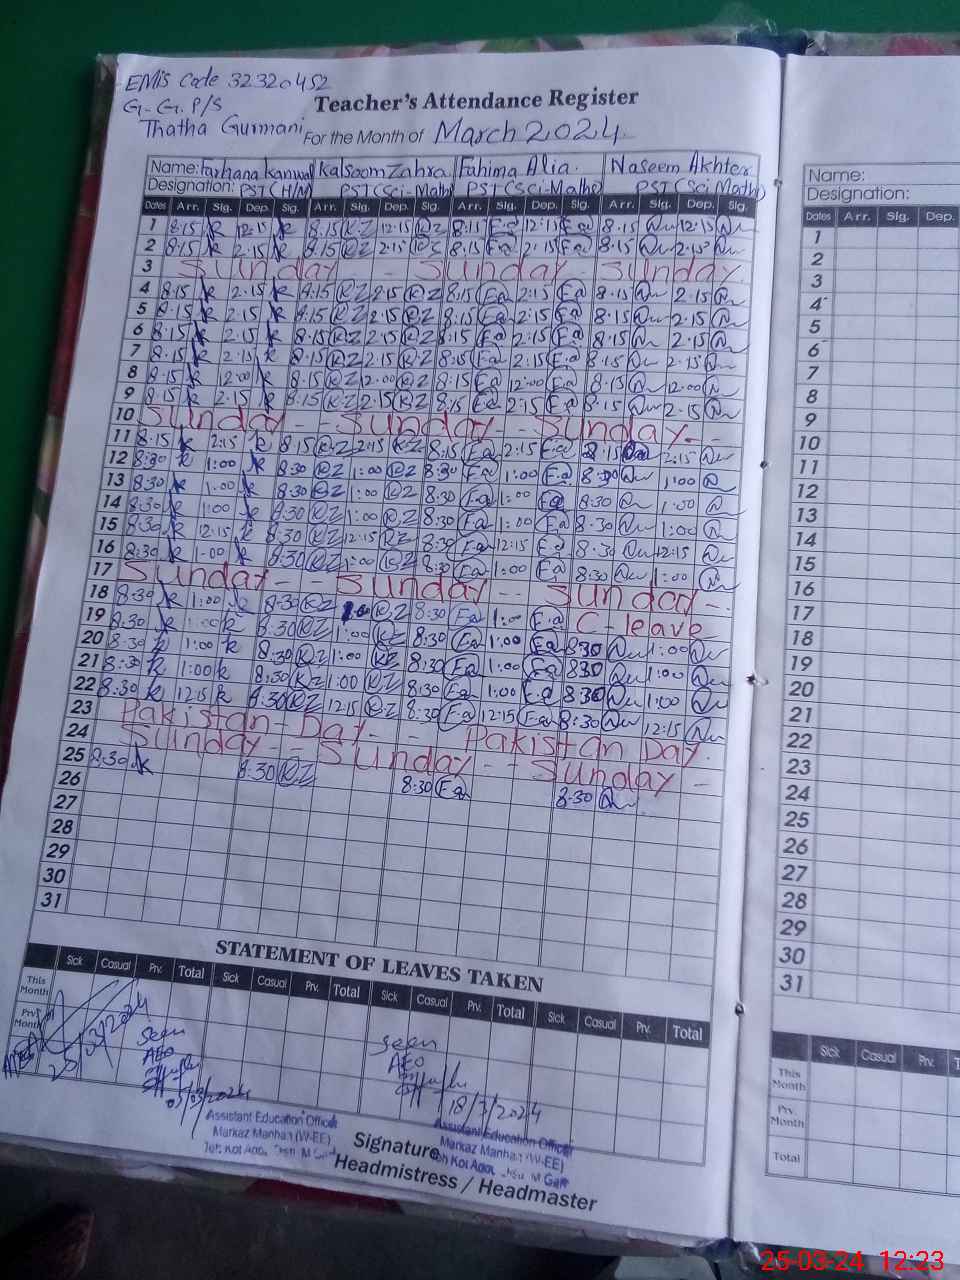 EMIS Code 32320452
G.G.P/S
Thatha Gurmani
Teacher's Attendance Register
For the Month of March 2024
Name: Farhana Kanwal Kalsoom Zahra Fahima Alia. Naseem Akhter
Designation: PST (H/M) PST (Sci-Math) PST (Sci-Maths) PST (Sci Math)
Dates Arr. Sig. Dep. Sig. Arr. Sig. Dep. Sig. Arr. Sig. Dep. Sig. Arr. Sig. Dep. Sig.
1 8:15 k 12:15 k 8.15 KZ 12:15 KZ 8:15 F.a 12:15 F.a 8.15 12:15
2 8:15 k 2.15 k 8.15 KZ 2:15 KZ 8.15 F.a 2:15 F.a 8:15 2:15
3 Sunday - - Sunday - Sunday.
4 8:15 k 2:15 k 8:15 KZ 2:15 KZ 8:15 F.a 2:15 F.a 8.15 2.15
5 8.15 k 2.15 k 8.15 KZ 2.15 KZ 8:15 F.a 2:15 F.a 8.15 2.15
6 8:15 k 2.15 k 8.15 KZ 2.15 KZ 8:15 F.a 2:15 F.a 8.15 2.15
7 8.15 k 2.15 k 8.15 KZ 2.15 KZ 8:15 F.a 2:15 F.a 8.15 2.15
8 8:15 k 12:00 k 8.15 KZ 12:00 KZ 8:15 F.a 12:00 F.a 8.15 12:00
9 8:15 k 2.15 k 8.15 KZ 2.15 KZ 8:15 F.a 2:15 F.a 8.15 2.15
10 Sunday - - Sunday - - Sunday - -
11 8:15 k 2:15 k 8:15 KZ 2:15 KZ 8:15 F.a 2:15 F.a 8.15 2:15
12 8:30 k 1:00 k 8:30 KZ 1:00 KZ 8:30 F.a 1:00 F.a 8:30 1:00
13 8:30 k 1:00 k 8:30 KZ 1:00 KZ 8:30 F.a 1:00 F.a 8:30 1:00
14 8:30 k 1:00 k 8:30 KZ 1:00 KZ 8:30 F.a 1:00 F.a 8:30 1:00
15 8:30 k 12:15 k 8:30 KZ 12:15 KZ 8:30 F.a 12:15 F.a 8:30 12:15
16 8:30 k 1:00 k 8:30 KZ 1:00 KZ 8:30 F.a 1:00 F.a 8:30 1:00
17 Sunday - - Sunday - - Sunday -
18 8:30 k 1:00 k 8:30 KZ 1:00 KZ 8:30 F.a 1:00 F.a C-leave
19 8:30 k 1:00 k 8:30 KZ 1:00 KZ 8:30 F.a 1:00 F.a 8:30 1:00
20 8:30 k 1:00 k 8:30 KZ 1:00 KZ 8:30 F.a 1:00 F.a 8:30 1:00
21 8:30 k 1:00 k 8:30 KZ 1:00 KZ 8:30 F.a 1:00 F.a 8:30 1:00
22 8:30 k 12:15 k 8:30 KZ 12:15 KZ 8:30 F.a 12:15 F.a 8:30 12:15
23 Pakistan - Day - - Pakistan Day
24 Sunday - - Sunday - - Sunday -
25 8:30 k 8:30 KZ 8:30 F.a 8.30
26
27
28
29
30
31
STATEMENT OF LEAVES TAKEN
Sick Casual Prv. Total Sick Casual Prv. Total Sick Casual Prv. Total Sick Casual Prv. Total
This Month
Prv. Month
25/03/2024
Seen
AEO
Seen
AEO
18/3/2024
Assistant Education Officer
Markaz Manhan (W-EE)
Assistant Education Officer
Markaz Manhan (W-EE)
Signature
Headmistress / Headmaster
Name:
Designation:
Dates Arr. Sig. Dep.
1
2
3
4
5
6
7
8
9
10
11
12
13
14
15
16
17
18
19
20
21
22
23
24
25
26
27
28
29
30
31
Sick Casual Prv.
This Month
Prv. Month
Total
25-03-24 12:23